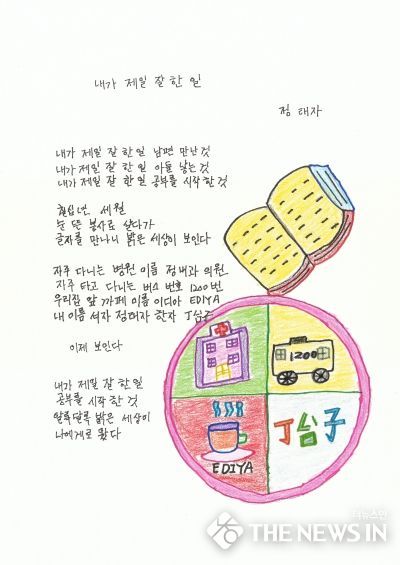 내가 제일 잘 한 일
정 태자
내가 제일 잘 한일 남편 만난것
내가 제일 잘 한일 아들 낳는것
내가 제일 잘 한일 공부를 시작한것
칠십년 세월
눈 뜬 봉사로 살다가
글자를 만나니 밝은 세상이 보인다
자주 다니는 병원 이름 정내과 의원
자주 타고 다니는 버스 번호 1200번
우리집 앞 까페 이름 이디아 EDIYA
내 이름 석자 정태자 한자 J台子
이제 보인다
내가 제일 잘 한 일
공부를 시작한 것
알록달록 밝은 세상이
나에게로 왔다
1200
EDIYA
J台子
더뉴스인
THE NEWS IN